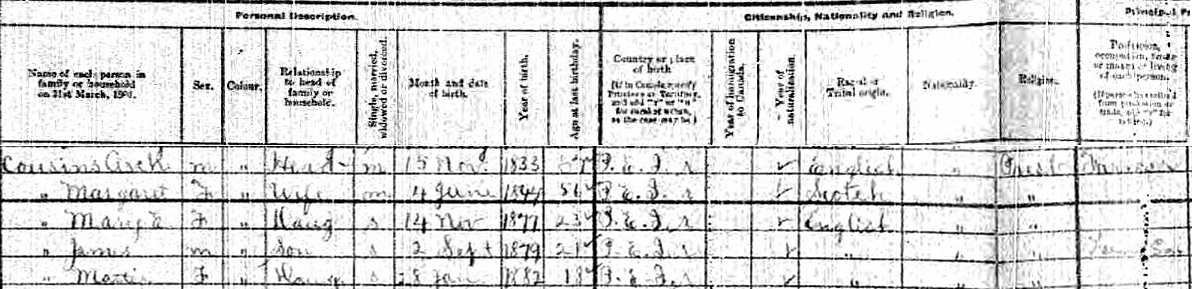 Personal Description. Citizenship, Nationality and Religion. Principal
Name of each person in family or household on 31st March, 1901. Sex. Colour. Relationship to head of family or household. Single, married, widowed or divorced. Month and date of birth. Year of birth. Age at last birthday. Country or place of birth (If in Canada specify Province or Territory, and add "r" or "u" for rural or urban, as the case may be.) Year of immigration to Canada. Year of naturalization. Racial or Tribal origin. Nationality. Religion. Profession, occupation, trade or means of living of each person.
Cousins m " Head m 15 Nov 1833 67 P. E. I. r English " Presb
" Margaret F " Wife m 4 June 1844 56 P. E. I. r Scotch " "
" Mary E F " Daug s 14 Nov 1877 23 P. E. I. r English " "
" James m " Son s 2 Sept 1879 21 P. E. I. r " " "
" F " s 28 Jan 1882 18 P. E. I. r " " "